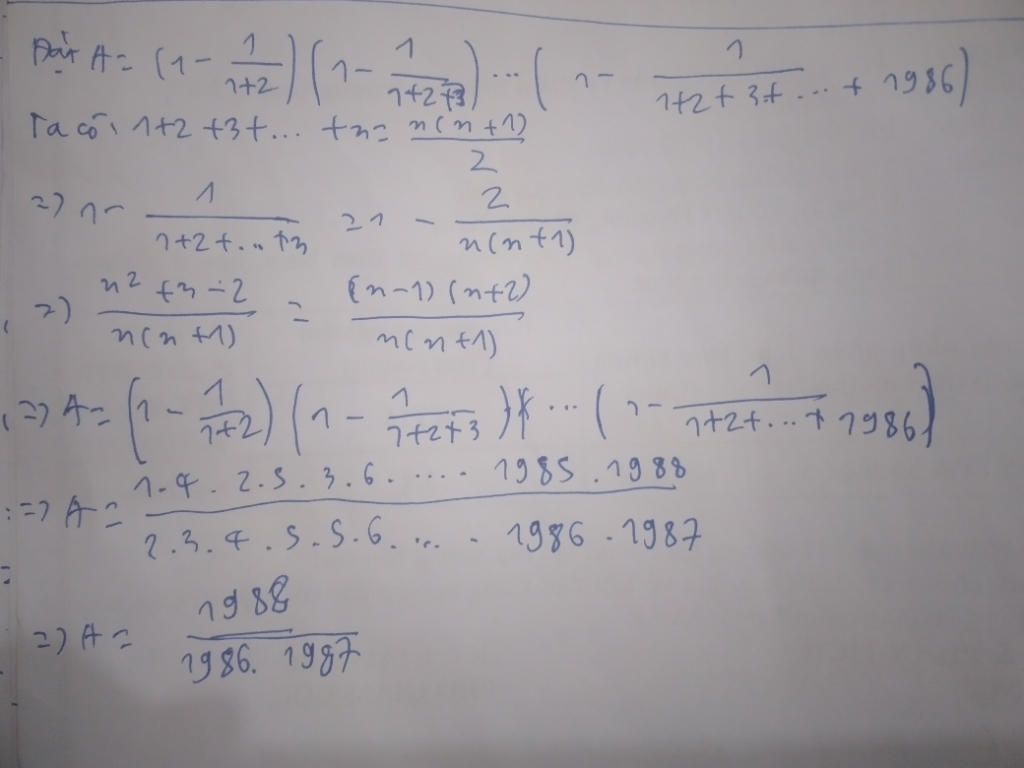 Đặt A = (1 - 1/(1+2)) (1 - 1/(1+2+3)) ... (1 - 1/(1+2+3+...+1986))
Ta có: 1+2+3+... +n = n(n+1)/2
=> 1 - 1/(1+2+...+n) = 1 - 2/(n(n+1))
=> (n²+n-2)/(n(n+1)) = ((n-1)(n+2))/(n(n+1))
=> A = (1 - 1/(1+2)) (1 - 1/(1+2+3)) ... (1 - 1/(1+2+...+1986))
=> A = (1.4.2.5.3.6. .... . 1985.1988)/(2.3.4.5.5.6. ... . 1986.1987)
=> A = 1988/(1986. 1987)